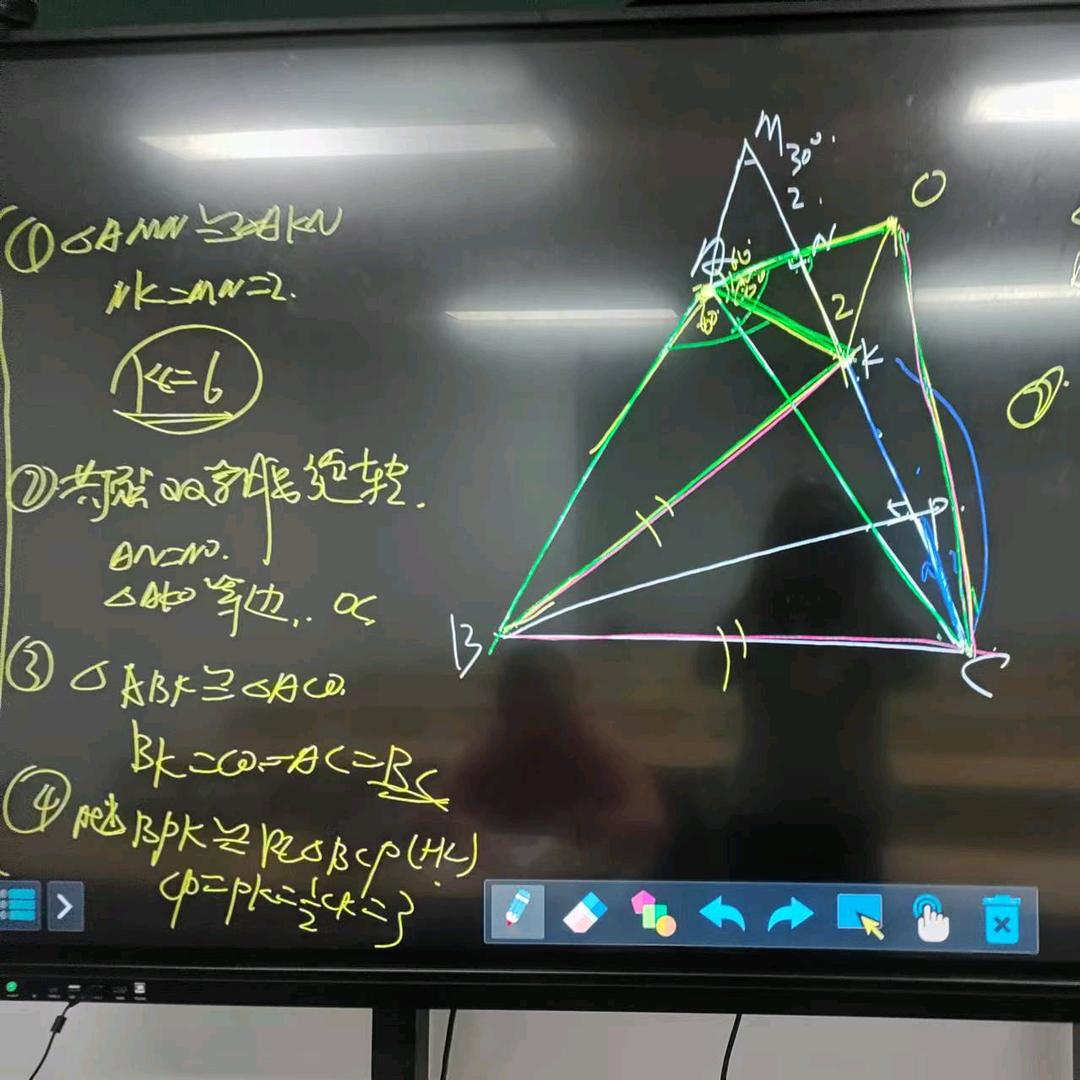 ① △AMN≌△AKN
NK=MN=2.
KC=6
② 共顶双等腰绕转.
AN=NO.
△AKO等边.. OC
③ △ABK≌△ACO.
BK=CO=AC=BC
④ BPK≌Rt△BCP(HL)
CP=PK=½CK=3
M 30°.
2.
O
A 60°
N
60°
2
K
P
B
C